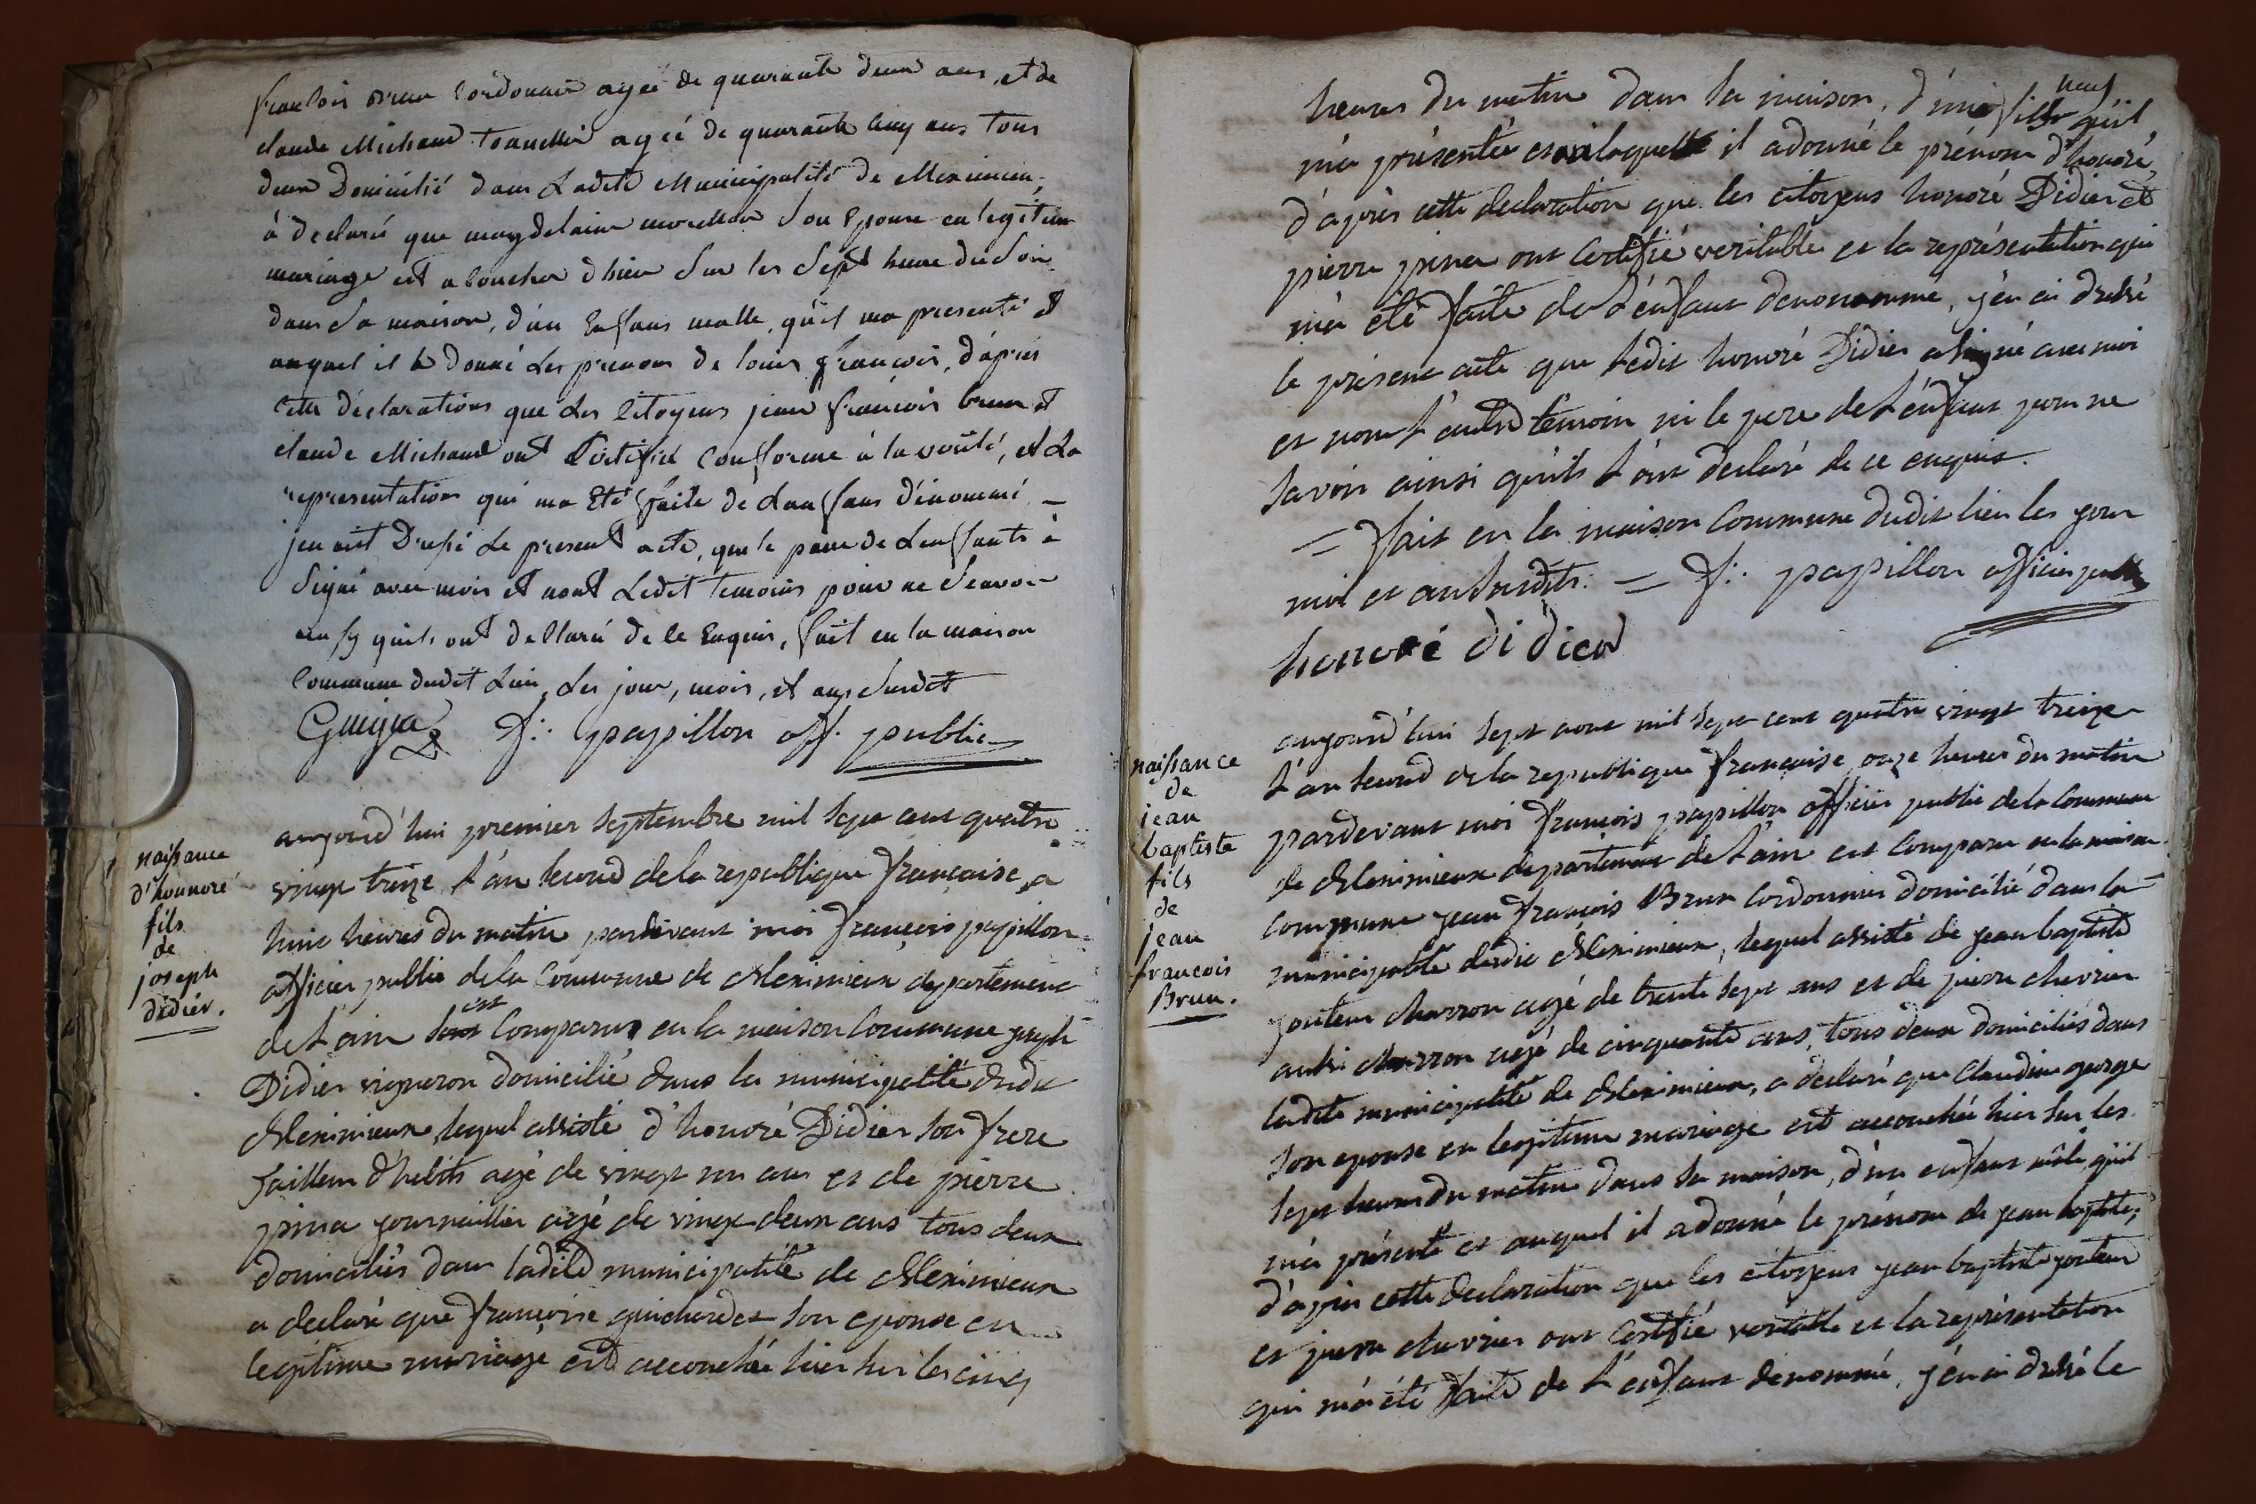 francois brun Cordonnier ageé de quarante deux ans, et de
claude Michaud travallieur ageé de quarante cinq ans tous
deux Domicilié dans Ladite Municipalité de Meximieu,
à declaré que magdelaine son Epouse en legitime
mariage est acoucher d'hier sur les Sept heure du Soir
dans Sa maison, d'un Enfans malle, qu'il ma presenté et
auquel il a donné Les prenom de louis francois, d'apres
cette déclarations que Les Citoyens jean francois brun et
claude Michaud ont Certifié Conforme à la vérité, et La
representation qui ma Eté faite de Lenfans dénommé _
jen ait Dressé Le present acte, que le paire de Lenfants à
Signé avec mois et nont Ledit temoins pour ne Scavoir
ainsy quils ont declaré de le Enquis, fait en la maison
Commune dudit Lieu, Les jour, mois, et ans Susdit
Guigue f: papillon off. public
naissance
d'honnoré
fils
de
joseph
didier.
aujourd'hui premier septembre mil sept cent quatre
vingt treize l'an second de la republique française, a
huit heures du matin pardevant moi françois papillon
officier public de la Commune de Meximieux departement
est
de l'ain sont Comparus en la maison Commune joseph
Didier vigneron domicilié dans la municipalité dudit
Meximieux, lequel assisté d'honoré Didier son frere
Tailleur d'habits agé de vingt un ans et de pierre
pina journaillier agé de vingt deux ans tous deux
domiciliés dans ladite municipalité de Meximieux
a declaré que françoise guichardet son epouse en
legitime mariage est accouchée hier sur les cinq
heures du matin dans sa maison, d'une fille qu'il
neuf
m'a présentée et a laquelle il a donné le prénom d'honoré,
d'après cette declaration que les citoyens honoré Didier et
pierre pina ont certifié veritable et la représentation qui
m'a été faite de l'enfant denommé, j'en ai dressé
le présent acte que ledit honoré Didier a signé avec moi
et non l'autre témoin ni le pere de l'enfant pour ne
savoir ainsi qu'ils l'ont declaré de ce enquis.
= fait en la maison Commune dudit lieu les jour
moi et an susdits. = f: papillon officier public
honoré didier
naissance
de
jean
baptiste
fils
de
jean
francois
Brun.
aujourd'hui sept aout mil sept cent quatre vingt treize
l'an second de la republique française, onze heures du matin
pardevant moi françois papillon officier public de la Commune
de Meximieux departement de l'ain est Comparu en la maison
Commune jean françois Brun Cordonnier domicilié dans la
municipalité dudit Meximieux, lequel assisté de jean baptiste
charron agé de trente sept ans et de pierre chevrier
aussi charron agé de cinquante ans, tous deux domiciliés dans
ladite municipalité de Meximieux, a declaré que Claudine george
son epouse en legitime mariage est accouchée hier sur les
sept heures du matin dans sa maison, d'un enfant mâle qu'il
m'a présenté et auquel il a donné le prénom de jean baptiste,
d'après cette declaration que les citoyens jean baptiste
et pierre chevrier ont certifié veritable et la représentation
qui m'a été faite de l'enfant denommé, j'en ai dressé le